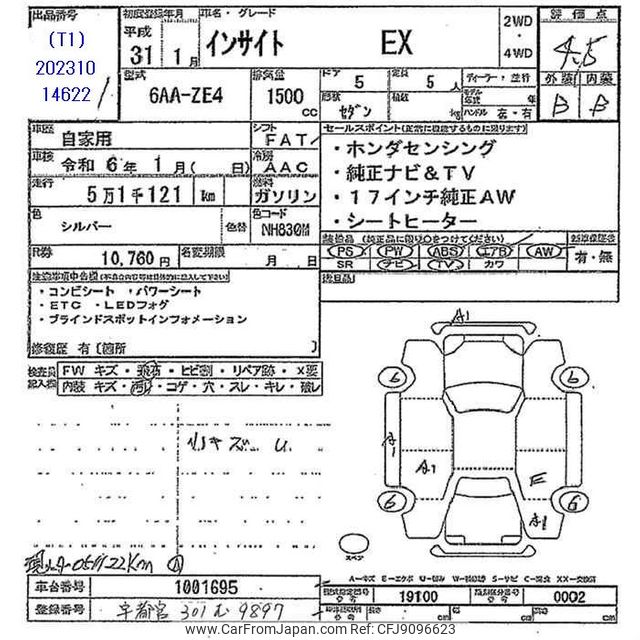 出品番号 初度登録年月 車名・グレード 2WD 評価点
(T1) 平成 インサイト EX ・ 4.5
202310 31年 1月 4WD 外装 内装
14622 B B
型式 排気量 ドア 5 定員 5人 ディーラー・並行
6AA-ZE4 1500cc 形状 セダン 積載 kg モデル年式 年
ハンドル 左・右
車歴 自家用 シフト FAT セールスポイント(正常に機能するものに限ります)
車検 令和 6年 1月( 日) 冷房 AAC ・ホンダセンシング
・純正ナビ&TV
走行 5万1千121 km 燃料 ガソリン ・17インチ純正AW
色 シルバー 色替 色コード NH830M ・シートヒーター
装備品(純正品に限り○をつけてください)
R券 10,760円 名変期限 月 日 PS PW ABS エアB AW 有・無
SR ナビ TV カワ
注意事項申告欄
後日品
・コンビシート ・パワーシート
・ETC ・LEDフォグ
・ブラインドスポットインフォメーション
修復歴 有(箇所 )
検査員記入欄 FW キズ・飛石・ヒビ割・リペア跡・X要
内装 キズ・汚れ・コゲ・穴・スレ・キレ・破レ
A1
6 6
小キズ U
A1 A1 E
6 6
A1
スペア
A-キズ E-エクボ U-凹み W-補修跡 S-サビ C-腐食 XX-交換済
車台番号 1001695 型式指定番号 19100 類別区分番号 0002
登録番号 宇都宮 301 む 9897 cm cm cm
www.CarFromJapan.com - CFJ9096623